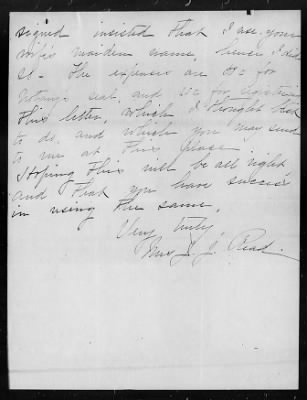 signed insisted that I use your
wife's maiden name, hence I did
so. The expenses are 50c for
Notary's seal, and 10c for registering
this letter, which I thought best
to do, and which you may send
to me at this place.
Hoping this will be all right
and that you have success
in using the same,
Very truly,
Mrs J. J. Read.